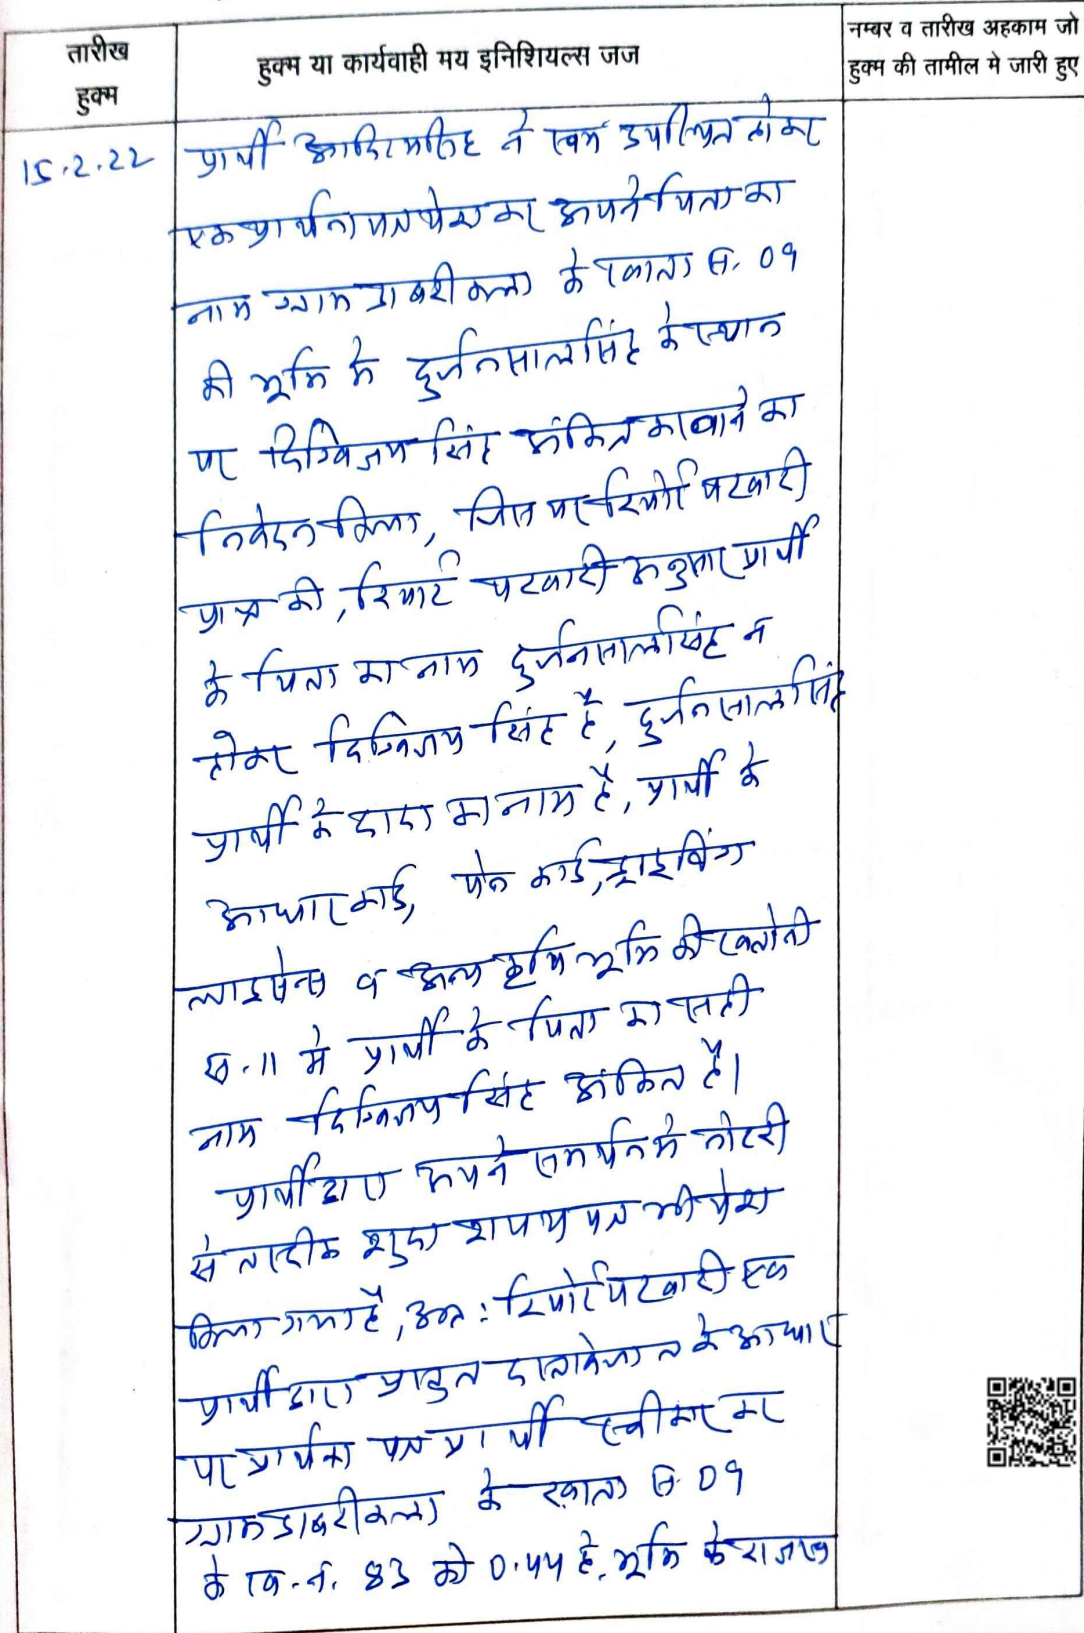 तारीख
हुक्म
हुक्म या कार्यवाही मय इनिशियल्स जज
नम्बर व तारीख अहकाम जो
हुक्म की तामील मे जारी हुए
15.2.22
प्रार्थी आदित्यसिंह ने स्वयं उपस्थित होकर
एक प्रार्थना पत्र पेश कर अपने पिता का
नाम ग्राम डाबरीकला के खाता सं. 09
की भूमि मे दुर्जनसालसिंह के स्थान
पर दिग्विजय सिंह अंकित करवाने का
निवेदन किया, जिस पर रिपोर्ट पटवारी
प्राप्त की, रिपोर्ट पटवारी अनुसार प्रार्थी
के पिता का नाम दुर्जनसालसिंह न
होकर दिग्विजय सिंह है, दुर्जनसालसिंह
प्रार्थी के दादा का नाम है, प्रार्थी के
आधार कार्ड, पेन कार्ड, ड्राइविंग
लाइसेन्स व अन्य कृषि भूमि की खतोनी
सं. 11 मे प्रार्थी के पिता का सही
नाम दिग्विजय सिंह अंकित है।
प्रार्थी द्वारा अपने समर्थन मे नोटेरी
से तस्दीक शुदा शपथ पत्र भी पेश
किया गया है, अतः रिपोर्ट पटवारी एवं
प्रार्थी द्वारा प्रस्तुत दस्तावेजात के आधार
पर प्रार्थना पत्र प्रार्थी स्वीकार कर
ग्राम डाबरीकला के खाता सं. 09
के ख. नं. 83 को 0.44 है. भूमि के राजस्व